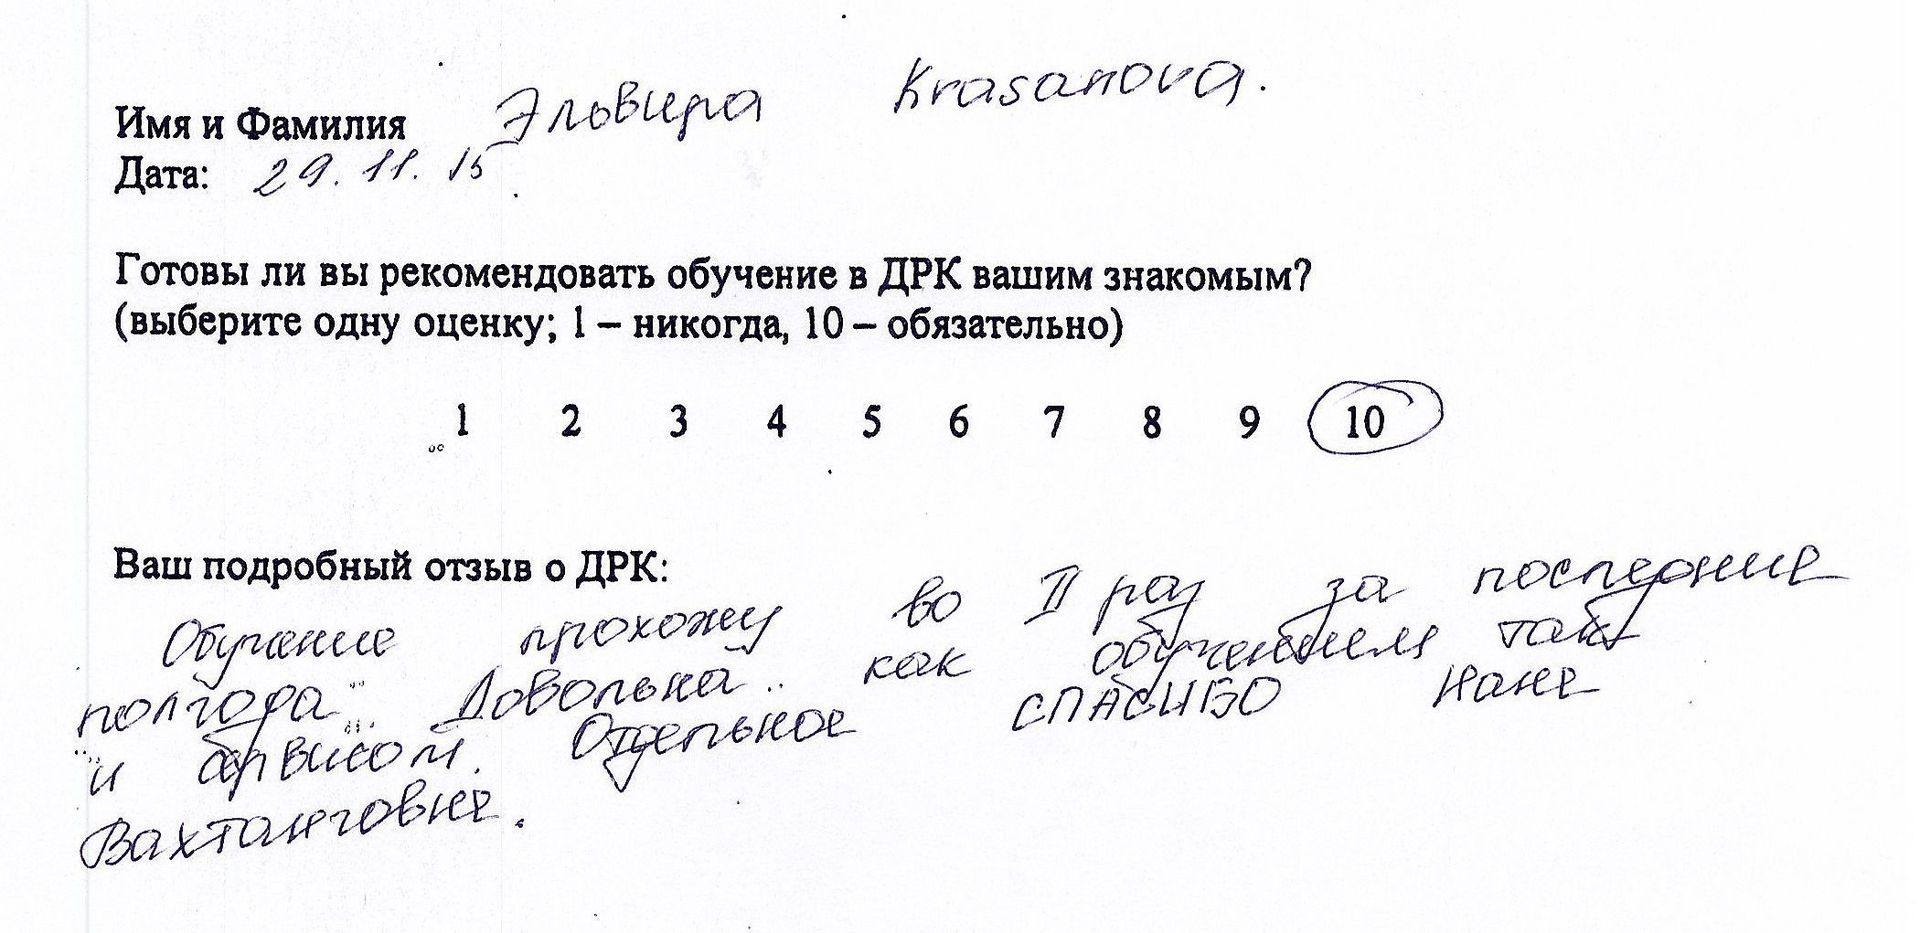 Имя и Фамилия Эльвира Krasanova.
Дата: 29.11.15
Готовы ли вы рекомендовать обучение в ДРК вашим знакомым?
(выберите одну оценку; 1 – никогда, 10 – обязательно)
1 2 3 4 5 6 7 8 9 10
Ваш подробный отзыв о ДРК:
Обучение прохожу во II раз за последние
полгода. Довольна как обучением так
и сервисом. Отдельное СПАСИБО Нане
Вахтанговне.